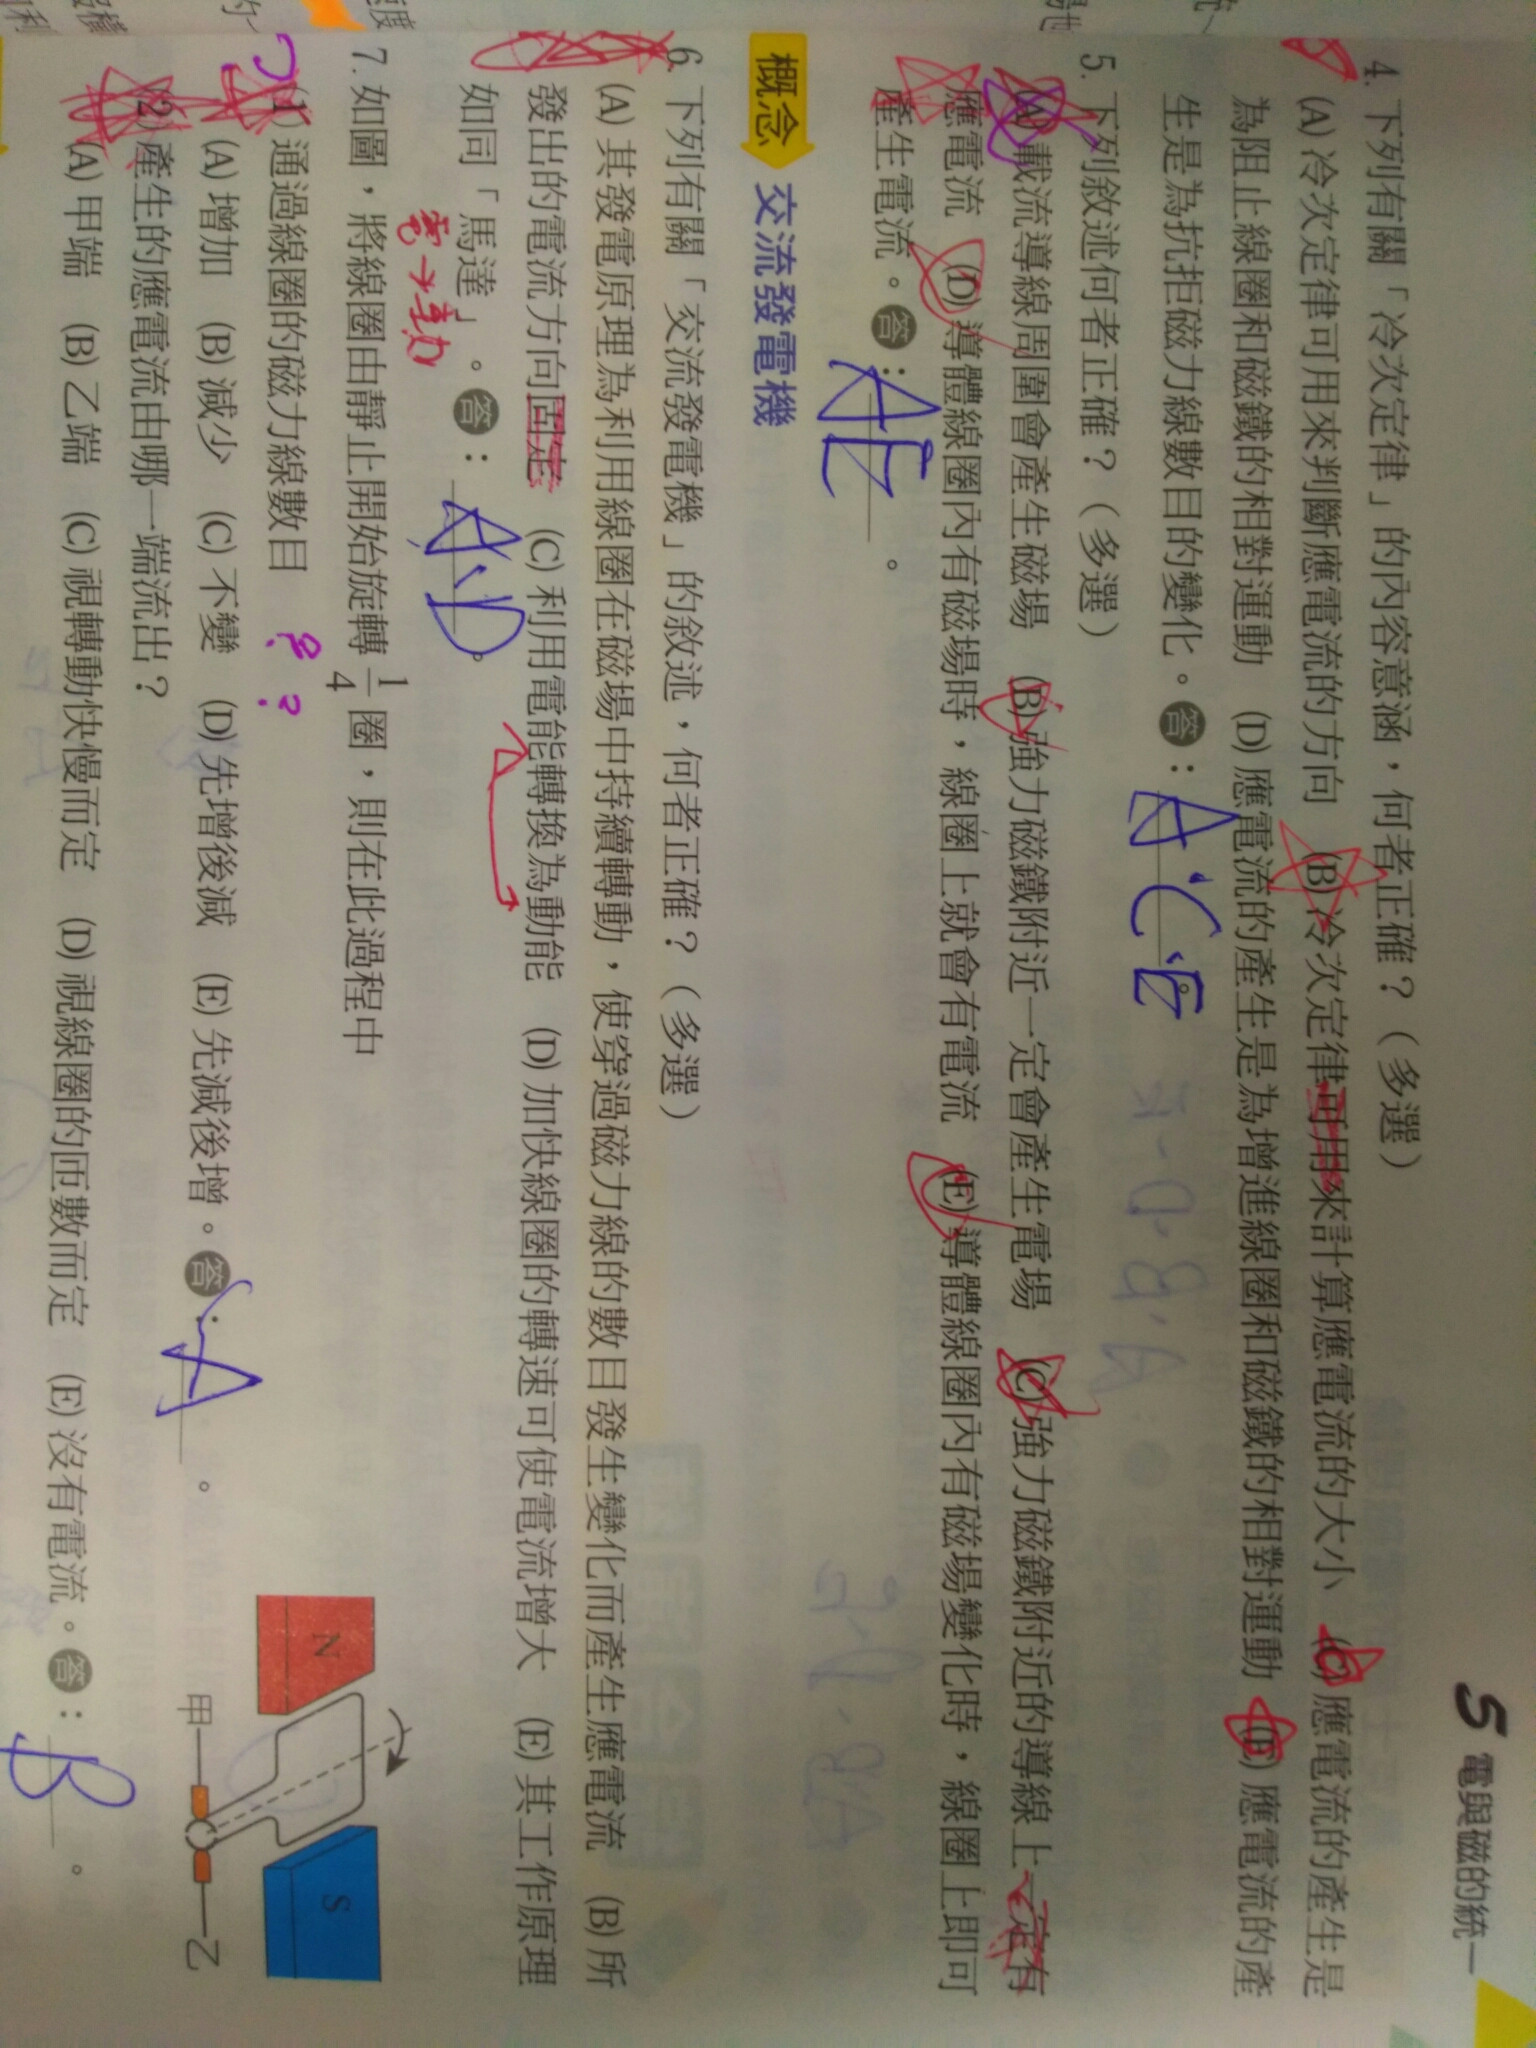 5 電與磁的統一
4. 下列有關「冷次定律」的內容意涵，何者正確？（多選）
(A) 冷次定律可用來判斷應電流的方向 (B) 冷次定律可用來計算應電流的大小 (C) 應電流的產生是
為阻止線圈和磁鐵的相對運動 (D) 應電流的產生是為增進線圈和磁鐵的相對運動 (E) 應電流的產
生是為抗拒磁力線數目的變化。答：A、C、E。
5. 下列敘述何者正確？（多選）
(A) 載流導線周圍會產生磁場 (B) 強力磁鐵附近一定會產生電場 (C) 強力磁鐵附近的導線上一定有
應電流 (D) 導體線圈內有磁場時，線圈上就會有電流 (E) 導體線圈內有磁場變化時，線圈上即可
產生電流。答：AE。
概念 交流發電機
6. 下列有關「交流發電機」的敘述，何者正確？（多選）
(A) 其發電原理為利用線圈在磁場中持續轉動，使穿過磁力線的數目發生變化而產生應電流 (B) 所
發出的電流方向固定 (C) 利用電能轉換為動能 (D) 加快線圈的轉速可使電流增大 (E) 其工作原理
如同「馬達」。答：A、D。
電→動
7. 如圖，將線圈由靜止開始旋轉 1/4 圈，則在此過程中
(1) 通過線圈的磁力線數目 ? ?
(A) 增加 (B) 減少 (C) 不變 (D) 先增後減 (E) 先減後增。答：A。
(2) 產生的應電流由哪一端流出？
(A) 甲端 (B) 乙端 (C) 視轉動快慢而定 (D) 視線圈的匝數而定 (E) 沒有電流。答：B。
N
S
甲
乙